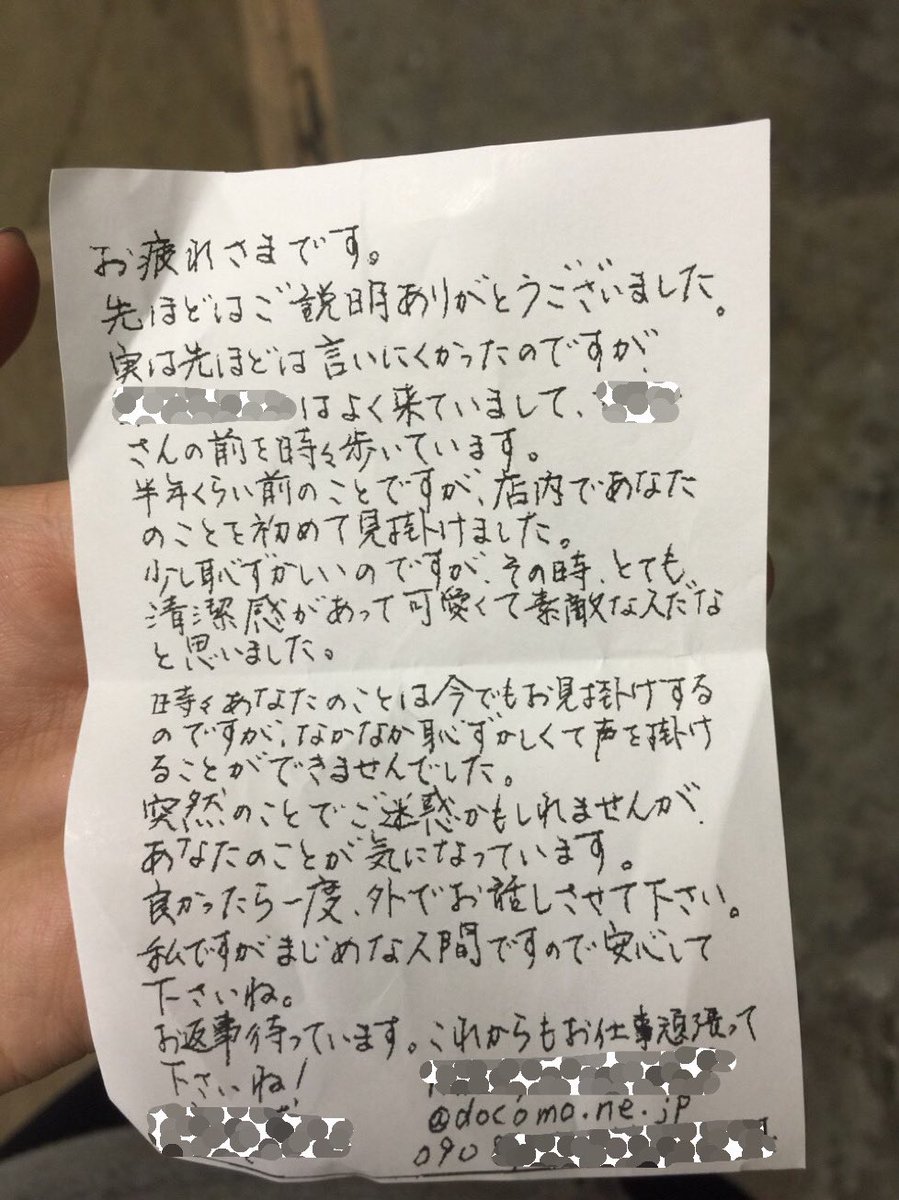 お疲れさまです。
先ほどはご説明ありがとうございました。
実は先ほどは言いにくかったのですが、
はよく来ていまして、
さんの前を時々歩いています。
半年くらい前のことですが、店内であなた
のことを初めて見掛けました。
少し恥ずかしいのですが、その時、とても
清潔感があって可愛くて素敵な人だな
と思いました。
時々あなたのことは今でもお見掛けする
のですが、なかなか恥ずかしくて声を掛け
ることができませんでした。
突然のことでご迷惑かもしれませんが、
あなたのことが気になっています。
良かったら一度、外でお話しさせて下さい。
私ですがまじめな人間ですので安心して
下さいね。
お返事待っています。これからもお仕事頑張って
下さいね!
@docomo.ne.jp
090